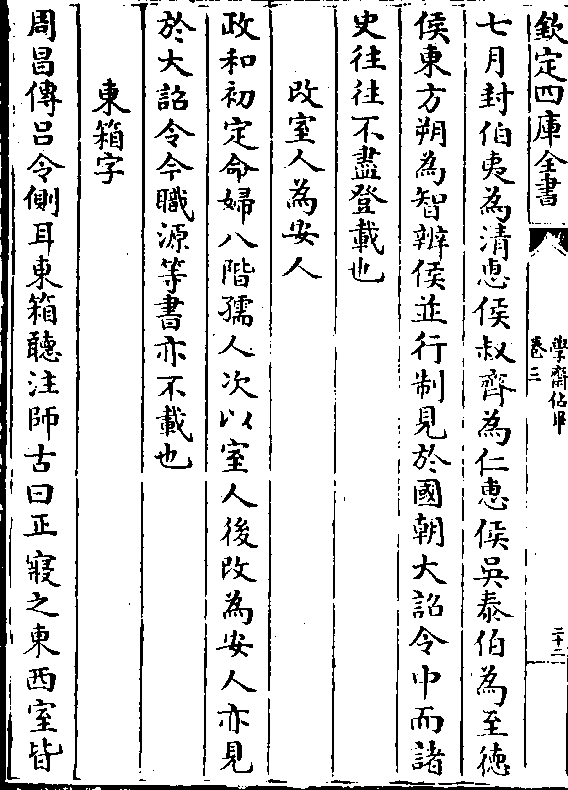 欽定四庫全書
學齋佔畢
卷三
二十二
七月封伯夷為清惠侯叔齊為仁惠侯吳泰伯為至徳
侯東方朔為智辨侯並行制見於國朝大詔令中而諸
史往往不盡登載也
改室人為安人
政和初定命婦八階孺人次以室人後改為安人亦見
於大詔令今職源等書亦不載也
東箱字
周昌傳吕令側耳東箱聽注師古曰正寢之東西室皆